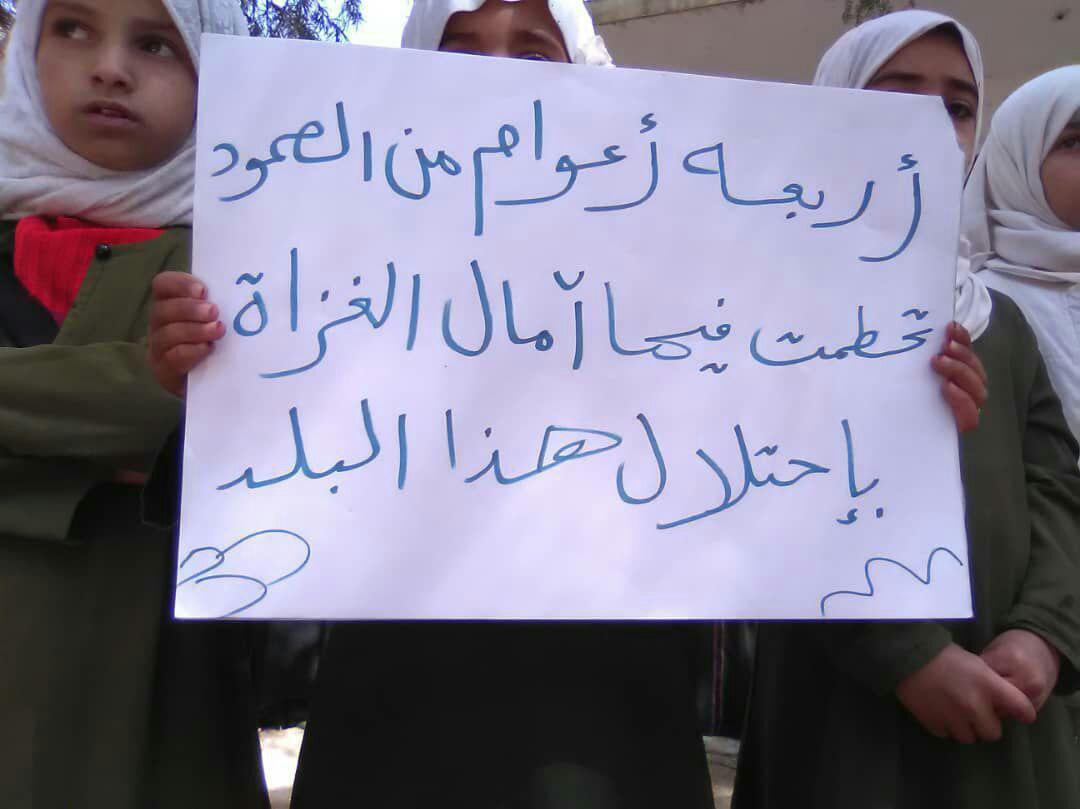 أربعه أعوام من الصمود
تحطمت فيها آمال الغزاة
بإحتلال هذا البلد